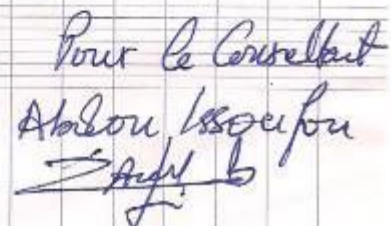 Pour le Consultant
Abdou Issoufou